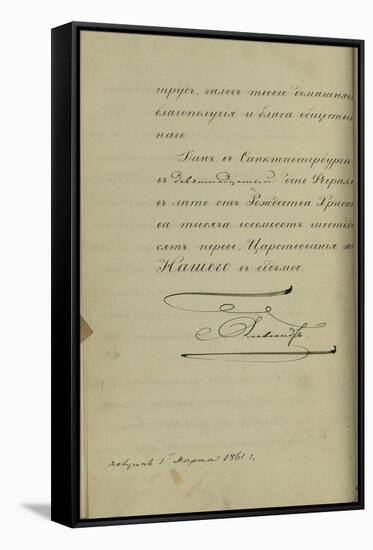 трудъ, залогъ твоего домашняг
благополучія и блага обществен
наго.
Данъ въ Санктпетербургѣ,
въ девятнадцатый день Февраля,
въ лѣто отъ Рождества Христ
ва тысяча восемьсотъ шестьд
сятъ первое, Царствованія ж
Нашего въ седьмое.
Александръ
1го Марта 1861 г.